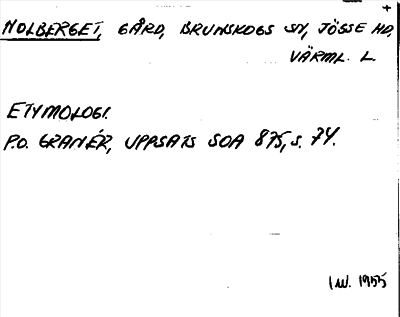 HOLBERGET, GÅRD, BRUNSKOGS SN, JÖSSE HD,
VÄRML. L.
ETYMOLOGI.
P.O. GRANÉR, UPPSATS SOA 875, S. 74.
1955